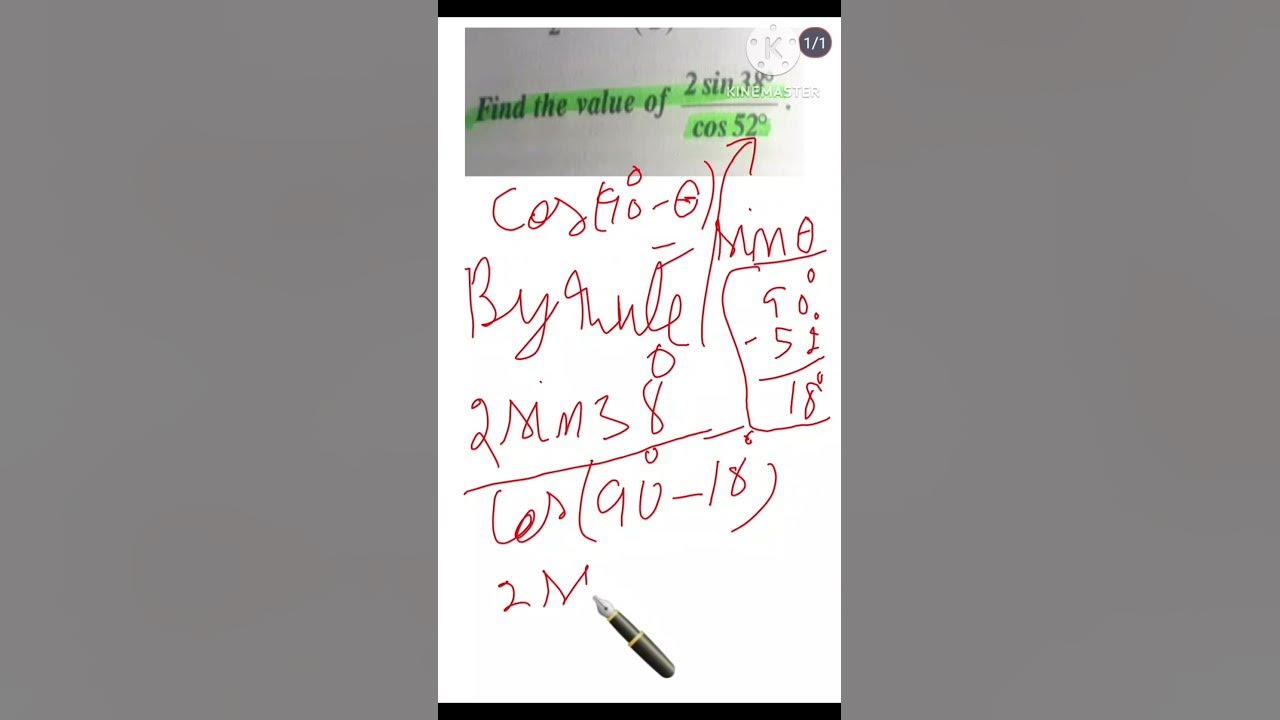 1/1
KINEMASTER
Find the value of 2 sin 38° / cos 52° .
Cos(90° - θ)
sin θ
By rule
90°
- 52°
18°
2 sin 38°
Cos(90° - 18°)
2 s